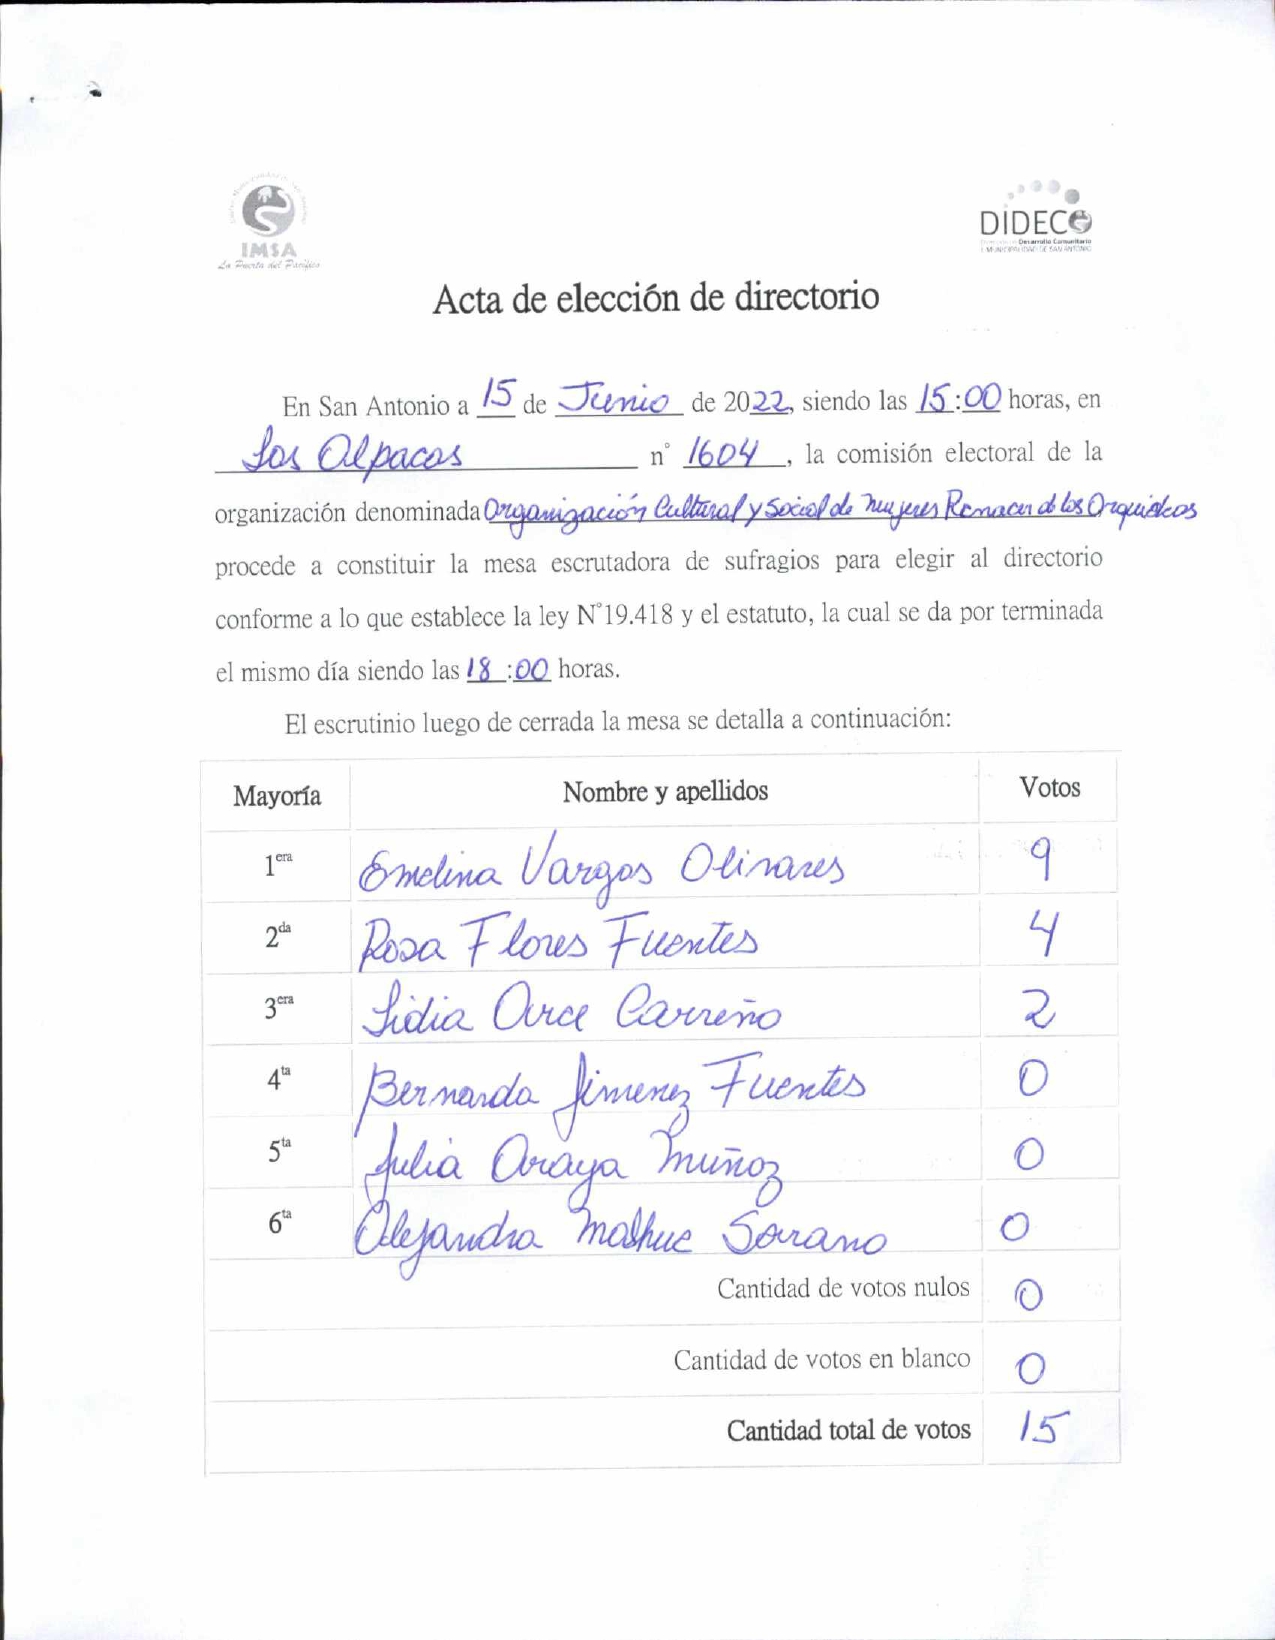 IMSA
La Puerta del Pacífico
DIDECO
Desarrollo Comunitario
I. MUNICIPALIDAD DE SAN ANTONIO
Acta de elección de directorio
En San Antonio a 15 de Junio de 2022, siendo las 15:00 horas, en
Los Alpacas n° 1604, la comisión electoral de la
organización denominada Organización Cultural y Social de Mujeres Renacer de las Orquideas
procede a constituir la mesa escrutadora de sufragios para elegir al directorio
conforme a lo que establece la ley N°19.418 y el estatuto, la cual se da por terminada
el mismo día siendo las 18:00 horas.
El escrutinio luego de cerrada la mesa se detalla a continuación:
Mayoría Nombre y apellidos Votos
1era Emelina Vargas Olivares 9
2da Rosa Flores Fuentes 4
3era Lidia Arce Carreño 2
4ta Bernarda Jimenez Fuentes 0
5ta Julia Araya Muñoz 0
6ta Alejandra Malhue Serrano 0
Cantidad de votos nulos 0
Cantidad de votos en blanco 0
Cantidad total de votos 15